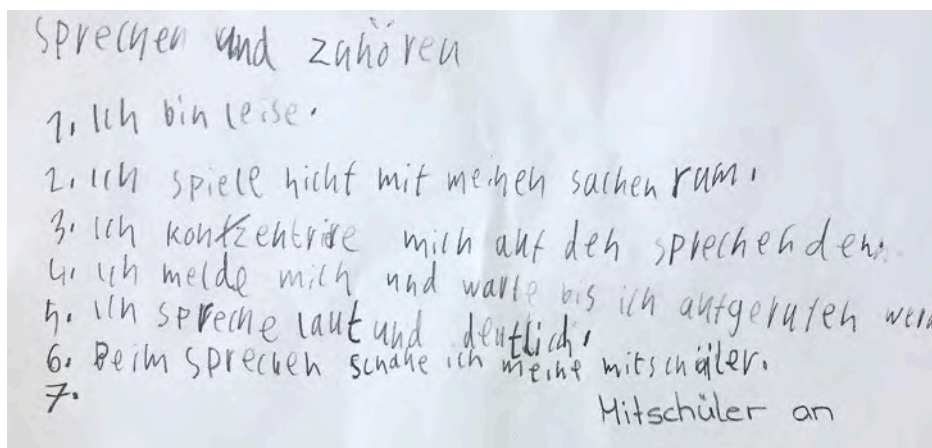 Sprechen und zuhören
1. Ich bin leise.
2. Ich spiele nicht mit meinen sachen rum.
3. Ich kontzentrire mich auf den sprechenden.
4. Ich melde mich und warte bis ich aufgerufen werd
5. Ich spreche laut und deutlich.
6. Beim sprechen schaue ich meine mitschüler.
7.
Mitschüler an